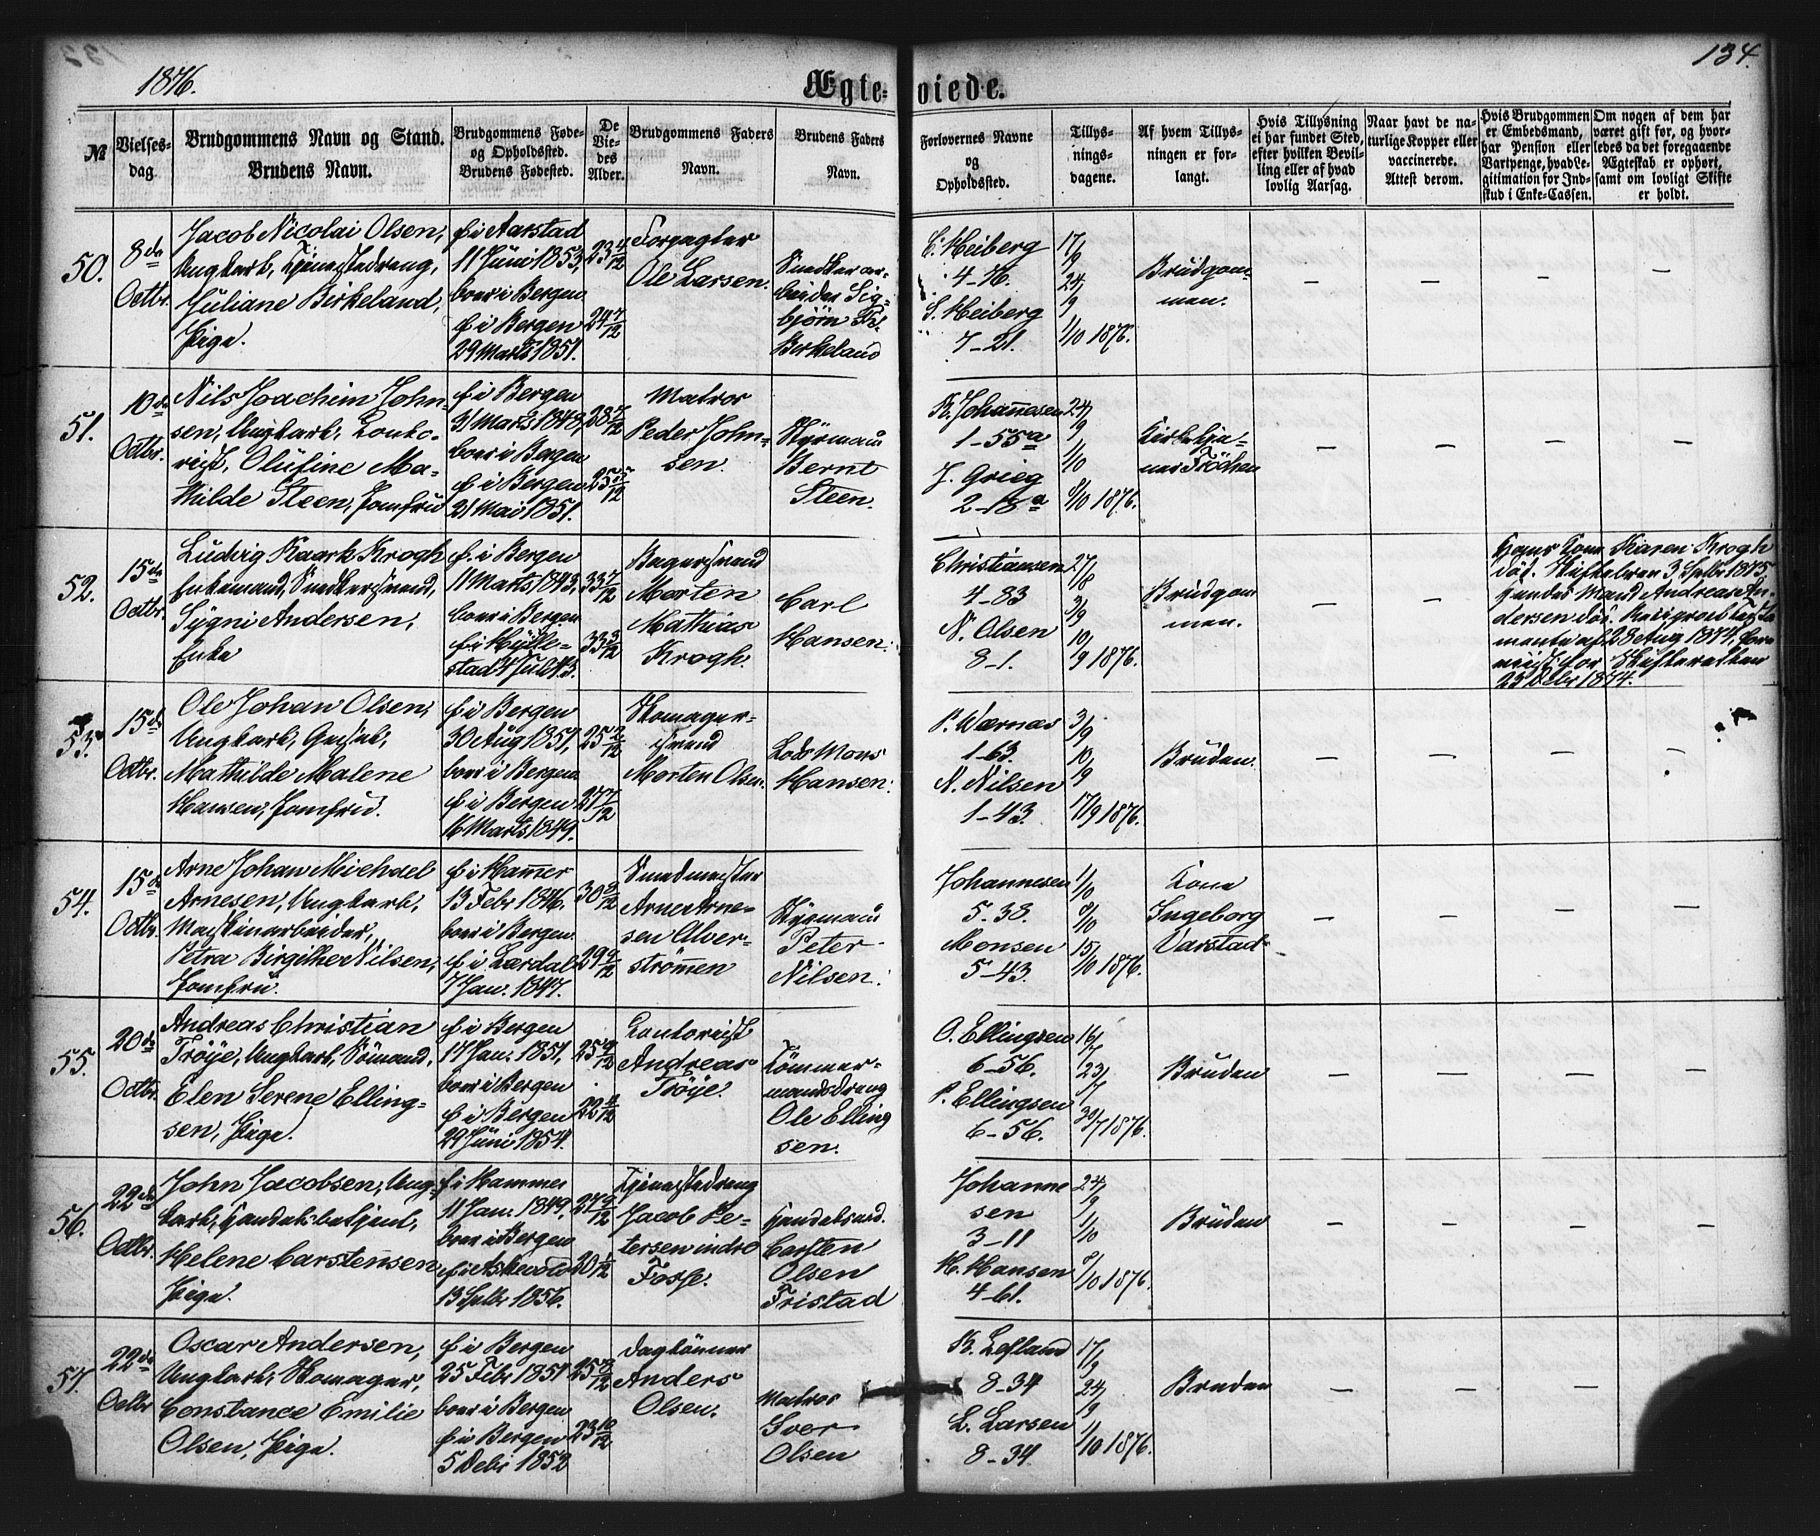 1876.
Ægte-
viede.
134.
№
Vielses-
dag.
Brudgommens Navn og Stand.
Brudens Navn.
Brudgommens Føde-
og Opholdssted.
Brudens Fødested.
De
Vie-
des
Alder.
Brudgommens Faders
Navn.
Brudens Faders
Navn.
Forlovernes Navne
og
Opholdssted.
Tillys-
nings-
dagene.
Af hvem Tillys-
ningen er for-
langt.
Hvis Tillysning
ei har fundet Sted,
efter hvilken Bevil-
ling eller af hvad
lovlig Aarsag.
Naar havt de na-
turlige Kopper eller
vaccinerede.
Attest derom.
Hvis Brudgommen
er Embedsmand,
har Pension eller
Vartpenge, hvad Le-
gitimation for Ind-
skud i Enke-Cassen.
Om nogen af dem har
været gift før, og hvor-
ledes da det foregaaende
Ægteskab er ophørt,
samt om lovligt Skifte
er holdt.
50.
8de
Octbr.
Jacob Nicolai Olsen,
Ungkarl, Tjenestedreng,
Juliane Birkeland,
Pige.
f. i Aarstad
11 Juni 1853,
boer i Bergen
f. i Bergen
29 Marts 1851.
23 4/12
24 7/12
Forpagter
Ole Larsen.
Snedkerar-
beider Sig-
bjørn Fr.
Birkeland
C. Heiberg
4-76.
S. Heiberg
7-21.
17/9
24/9
1/10 1876.
Brudgom-
men.
51.
10de
Octbr.
Nils Joachim John-
sen, Ungkarl, Conto-
rist, Olufine Ma-
thilde Steen, Jomfru
f. i Bergen
21 Marts 1848,
boer i Bergen
f. i Bergen
21 Mai 1851.
28 7/12
25 5/12
Matros
Peder John-
sen.
Styrmand
Bernt
Steen.
K. Johannesen
1-55a
J. Grieg
2-18a
24/9
1/10
8/10 1876.
Kirketje-
ner Tröchen
52.
15de
Octbr.
Ludvig Kaark Krogh
Enkemand, Snedkersvend,
Sygni Andersen,
Enke
f. i Bergen
11 Marts 1843,
boer i Bergen
f. i Hylle-
stad 4 Juli 43.
33 7/12
33 3/12
Bagersvend
Morten
Mathias
Krogh.
Carl
Hansen.
Christiansen
4-83
N. Olsen
8-1.
27/8
3/9
10/9 1876.
Brudgom
men.
Hans Kone Karen Krogh
död. Skiftebrev 3 Septbr 1875,
hendes Mand Andreas An-
dersen död. Testa-
mente af 28 Aug 1874,
for Skifteretten
25 Debr 1874.
53.
15de
Octbr.
Ole Johan Olsen,
Ungkarl,
Mathilde Malene
Hansen, Jomfru.
f. i Bergen
30 Aug 1851,
boer i Bergen
f. i Bergen
16 Marts 1849.
25 2/12
27 7/12
Skomager-
svend
Morten Olsen.
Lods Mons
Hansen.
P. Wærnæs
1-63.
N. Nilsen
1-43.
3/9
10/9
17/9 1876.
Bruden.
54.
15de
Octbr.
Arne Johan Michael
Arnesen, Ungkarl,
Maskinarbeider,
Petra Birgithe Nilsen,
Jomfru.
f. i Hammer
13 Febr 1846.
boer i Bergen.
f. i Lærdal
7 Jan. 1847.
30 8/12
29 9/12
Smedmester
Arne Arne-
sen Alver-
strömmen
Styrmand
Peter
Nilsen.
Johannesen
5-38.
Monsen
5-43.
1/10
8/10
15/10 1876.
Kone
Ingeborg
Varstad
55.
20de
Octbr.
Andreas Christian
Tröye, Ungkarl, Sömand.
Elen Serene Elling-
sen, Pige.
f. i Bergen
17 Jan. 1851,
boer i Bergen
f. i Bergen
29 Juni 1854.
25 9/12
22 4/12
Contorist
Andreas
Tröye.
Tömmer-
mandsdreng
Ole Elling
sen.
O. Ellingsen
6-56.
P. Ellingsen
6-56.
16/7
23/7
30/7 1876.
Bruden
56.
22de
Octbr.
John Jacobsen, Ung-
karl, Handelsbetjent,
Helene Carstensen
Pige.
f. i Hammer
11 Jan. 1849,
boer i Bergen
f. i Askevold
13 Septbr 1856.
27 9/12
20 1/12
Tjenestedreng
Jacob Pe-
tersen indre
Fosse.
Handelsmd.
Carsten
Olsen
Fristad
Johanne
sen
3-11
H. Hansen
4-61.
24/9
1/10
8/10 1876.
Bruden
57.
22de
Octbr
Oscar Andersen,
Ungkarl, Skomager,
Constance Emilie
Olsen, Pige.
f. i Bergen
25 Febr 1851
boer i Bergen
f. i Bergen
5 Debr 1852
25 8/12
23 10/12
Daglönner
Anders
Olsen.
Matros
Iver
Olsen
K. Lofland
8-34
L. Larsen
8-34
17/9
24/9
1/10 1876.
Bruden